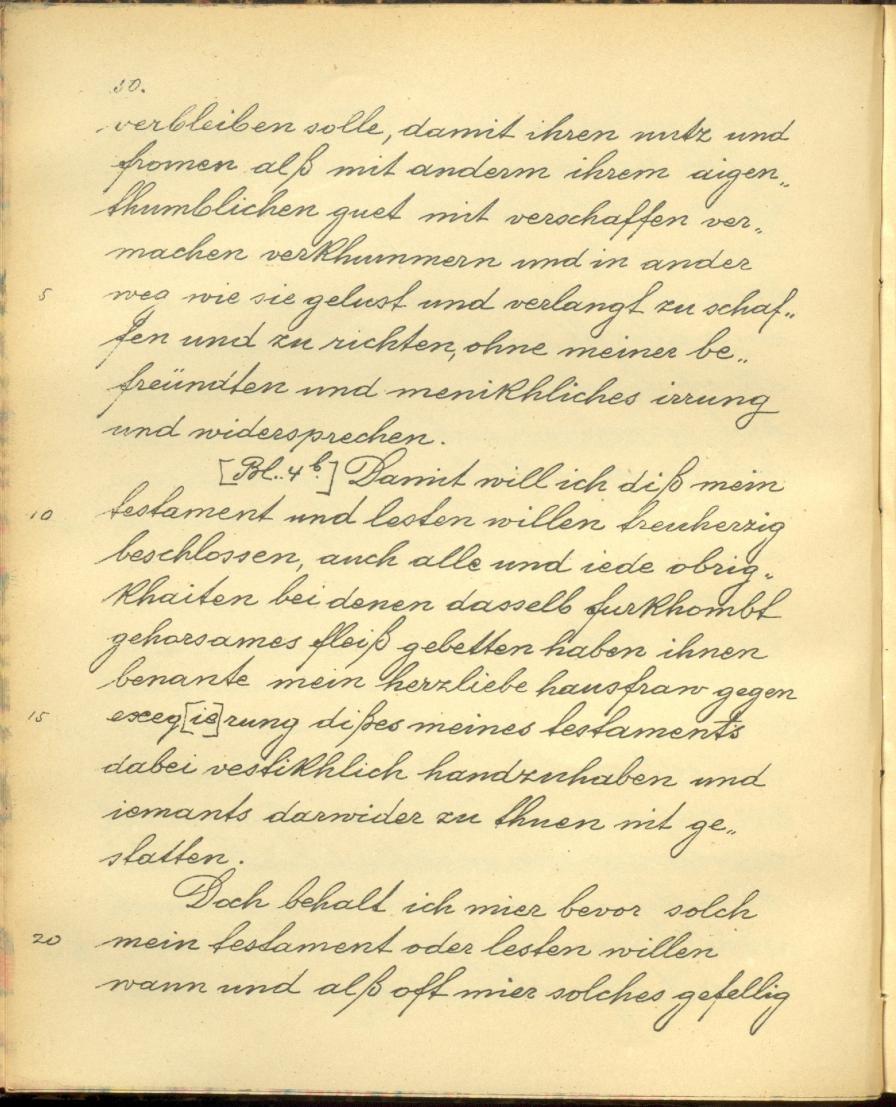 30.
verbleiben solle, damit ihren nutz und
fromen alß mit anderm ihrem aigen„
thumblichen guet mit verschaffen ver„
machen verkhummern und in ander
5 weg wie sie gelust und verlangt zu schaf„
fen und zu richten, ohne meiner be„
freündten und menikhliches irrung
und widersprechen.
[Bl. 4b.] Damit will ich diß mein
10 testament und lesten willen treuherzig
beschlossen, auch alle und iede obrig„
khaiten bei denen dasselb furkhombt
gehorsames fleiß gebetten haben ihnen
benante mein herzliebe hausfraw gegen
15 exeq[ie]rung dißes meines testaments
dabei vestikhlich handzuhaben und
iemants darwider zu thuen nit ge„
statten.
Doch behalt ich mier bevor solch
20 mein testament oder lesten willen
wann und alß oft mier solches gefellig